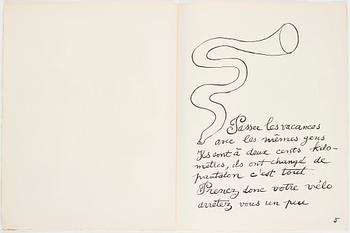 Passer les vacances
avec les mêmes gens
Ils sont à deux cents kilo-
mètres, ils ont changé de
pantalon c'est tout.
Prenez donc votre vélo
arrêtez vous un peu
5